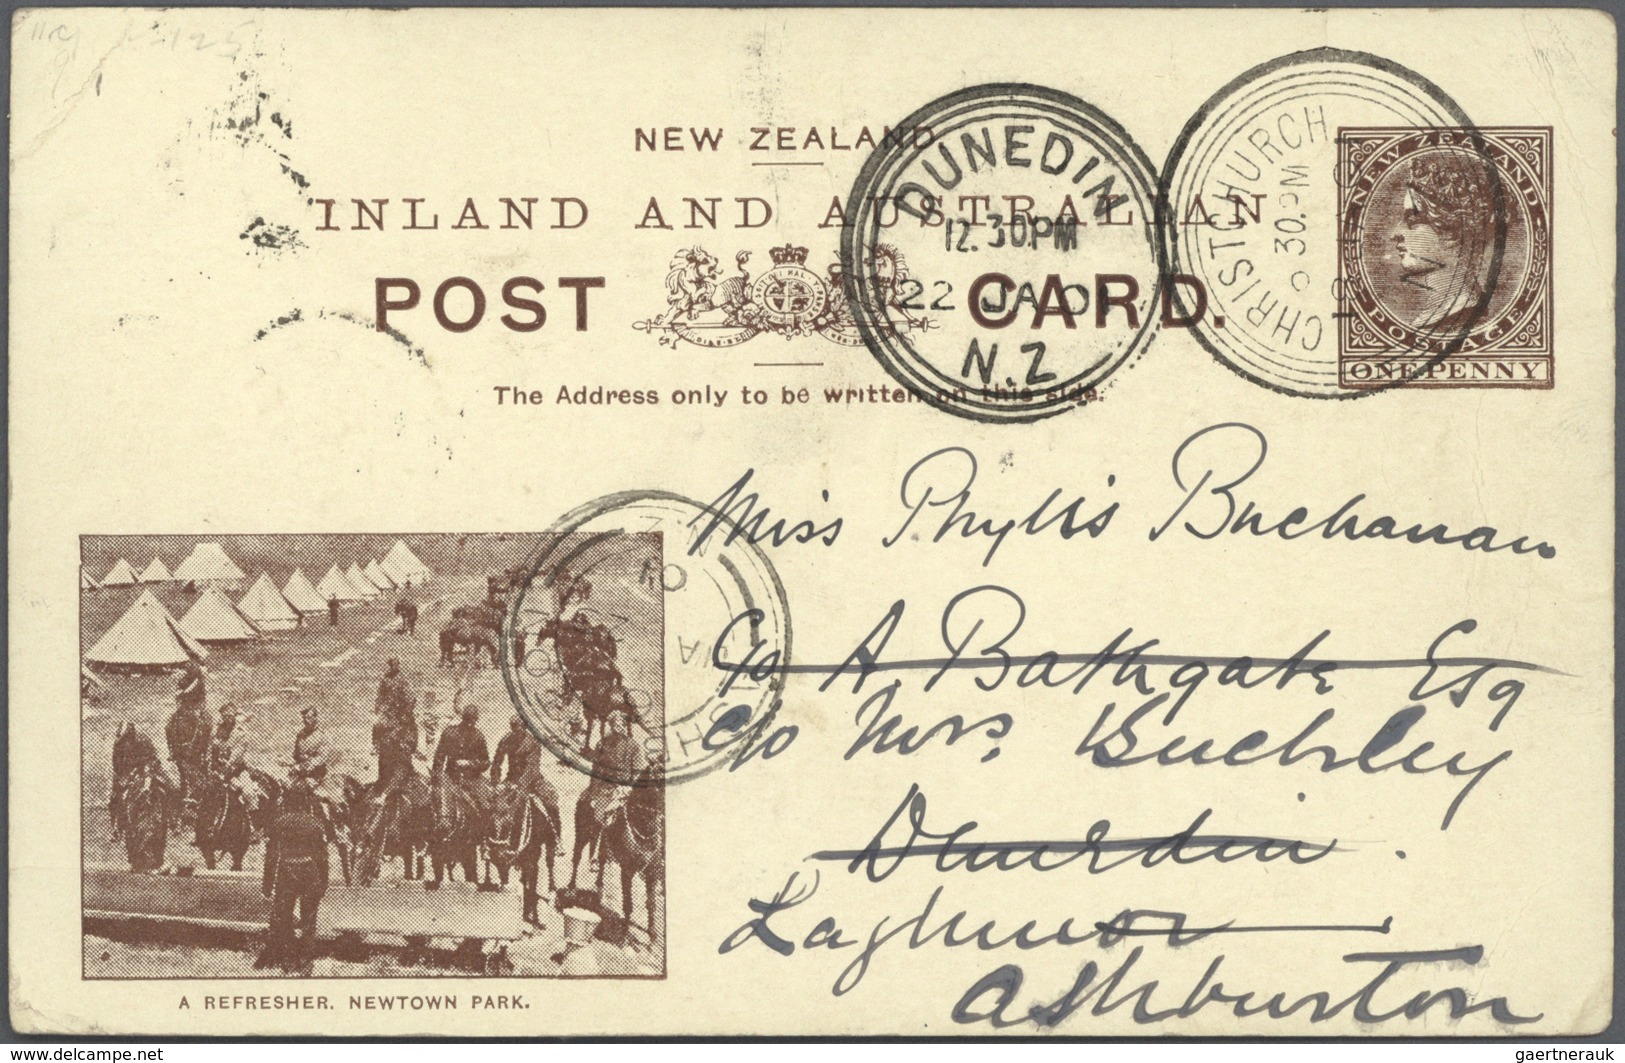 NEW ZEALAND
INLAND AND AUSTRALIAN
POST CARD.
The Address only to be written on this side.
DUNEDIN
12.30PM
22 JA 01
N.Z
CHRISTCHURCH
30.PM
N.Z
NEW ZEALAND
POSTAGE
ONE PENNY
Miss Phyllis Buchanan
c/o A. Bathgate Esq
c/o Mrs. Buckley
Dunedin.
Laghmor
Ashburton
N.Z
01
JA
A REFRESHER. NEWTOWN PARK.
www.delcampe.net
gaertnerauk